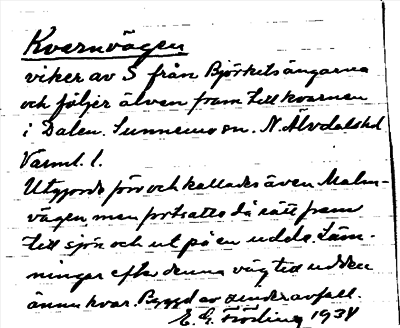 Kvarnvägen
viker av S från Björketsängarna
och följer älven fram till kvarnen
i Dalen. Sunnemo sn. N. Älvdals hd
Värml. l.
Utgjorde förr och kallades även Malm-
vägen men fortsatte då rätt fram
till sjön och ut på en udde. Läm-
ningar efter denna väg till udden
ännu kvar. Byggd av sinderavfall.
E. G. Fröding 1938